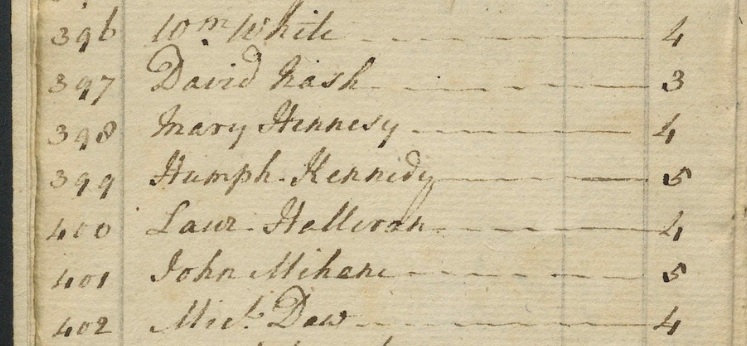 396 Wm White 4
397 David Nash 3
398 Mary Hennesy 4
399 Humph. Kennedy 5
400 Laur. Halleran 4
401 John Mihane 5
402 Micl. Daw 4